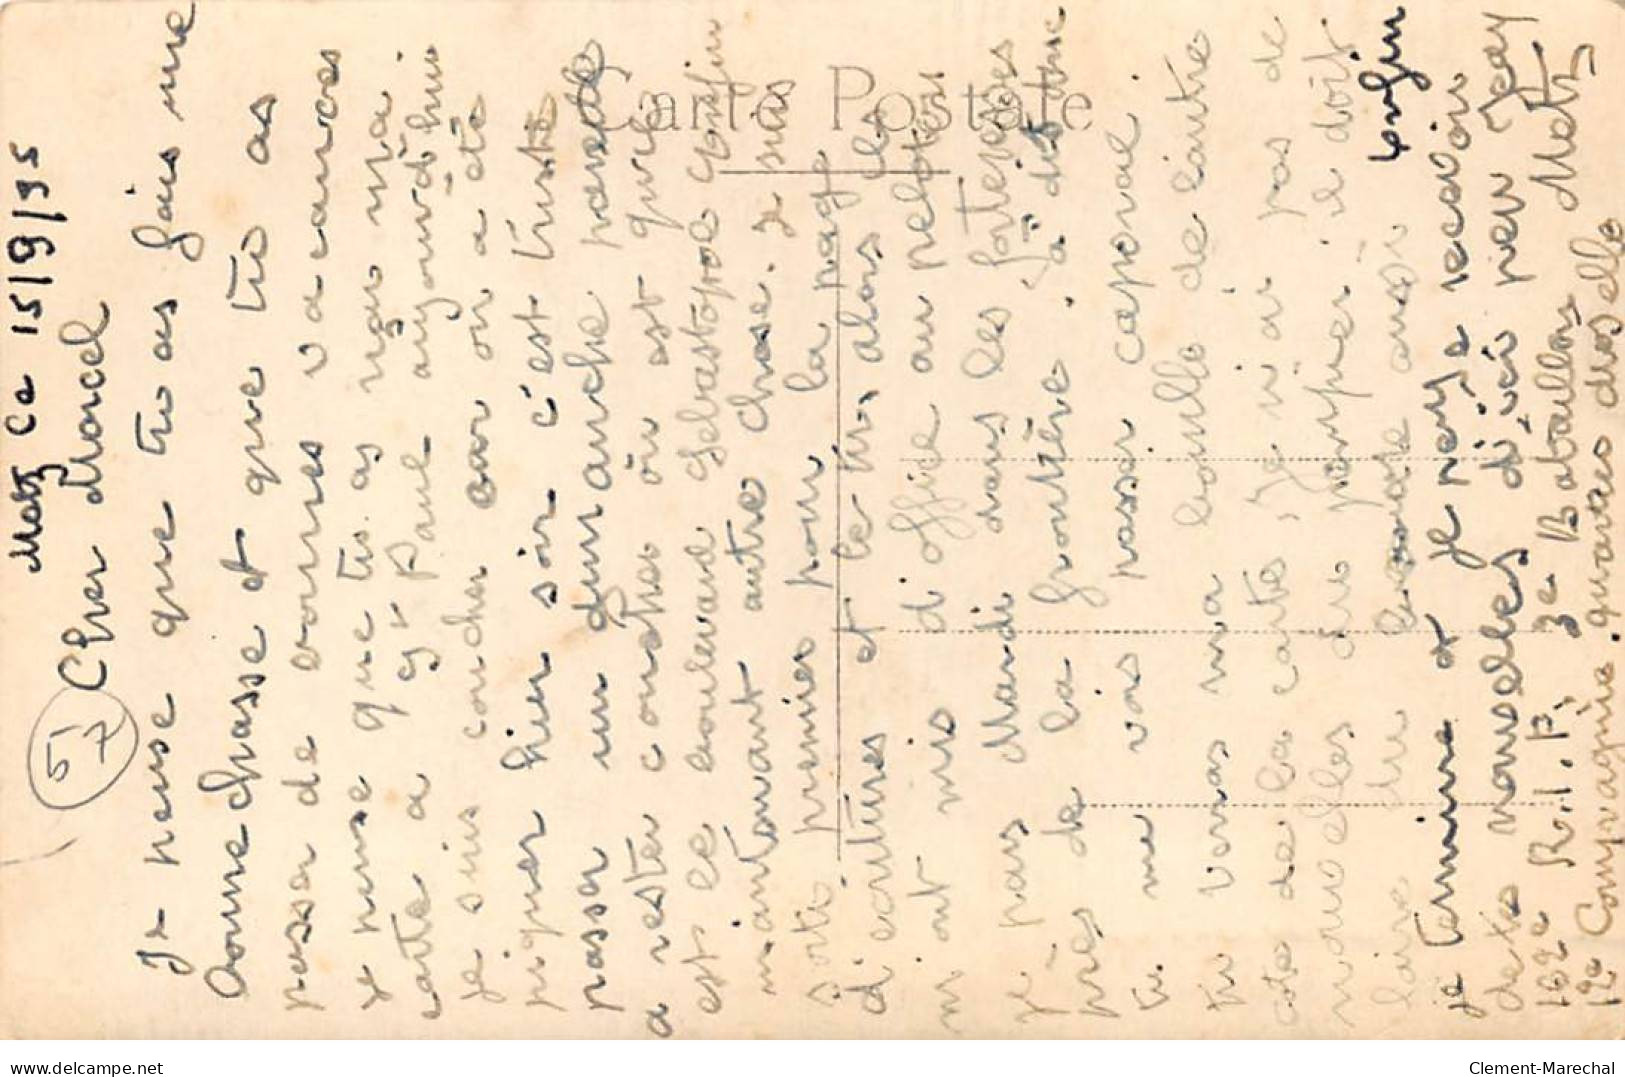 Metz ce 15/9/35
Cher Marcel
Je pense que tu as fais une
bonne chasse et que tu as
passer de bonnes vacances
je pense que tu as reçu ma
carte a Paul aujourd'hui
je suis coucher car on a été
piquer hier soir c'est triste
passer un dimanche pareil
a rester coucher où est
est le boulevard Sebastopol enfin
maintenant autre chose. je suis
sortis premier pour la page
d'ecritures et le tir, alors ils
m'ont mis d'office au peloton
je pars Mardi dans les forteresses
près de la frontière. a dis donc
tu me vois passer caporal
tu verras ma bouille de l'autre
coté de la carte, Je n'ai pas de
nouvelles du pompier. il doit
faire du aussi enfin
je termine et je pense recevoir
de tes nouvelles d'ici peu Jean
162e R.I.F, 3e Bataillon Metz
12e Compagnie. quartier
57
Carte Postale
www.delcampe.net
Clement-Marechal